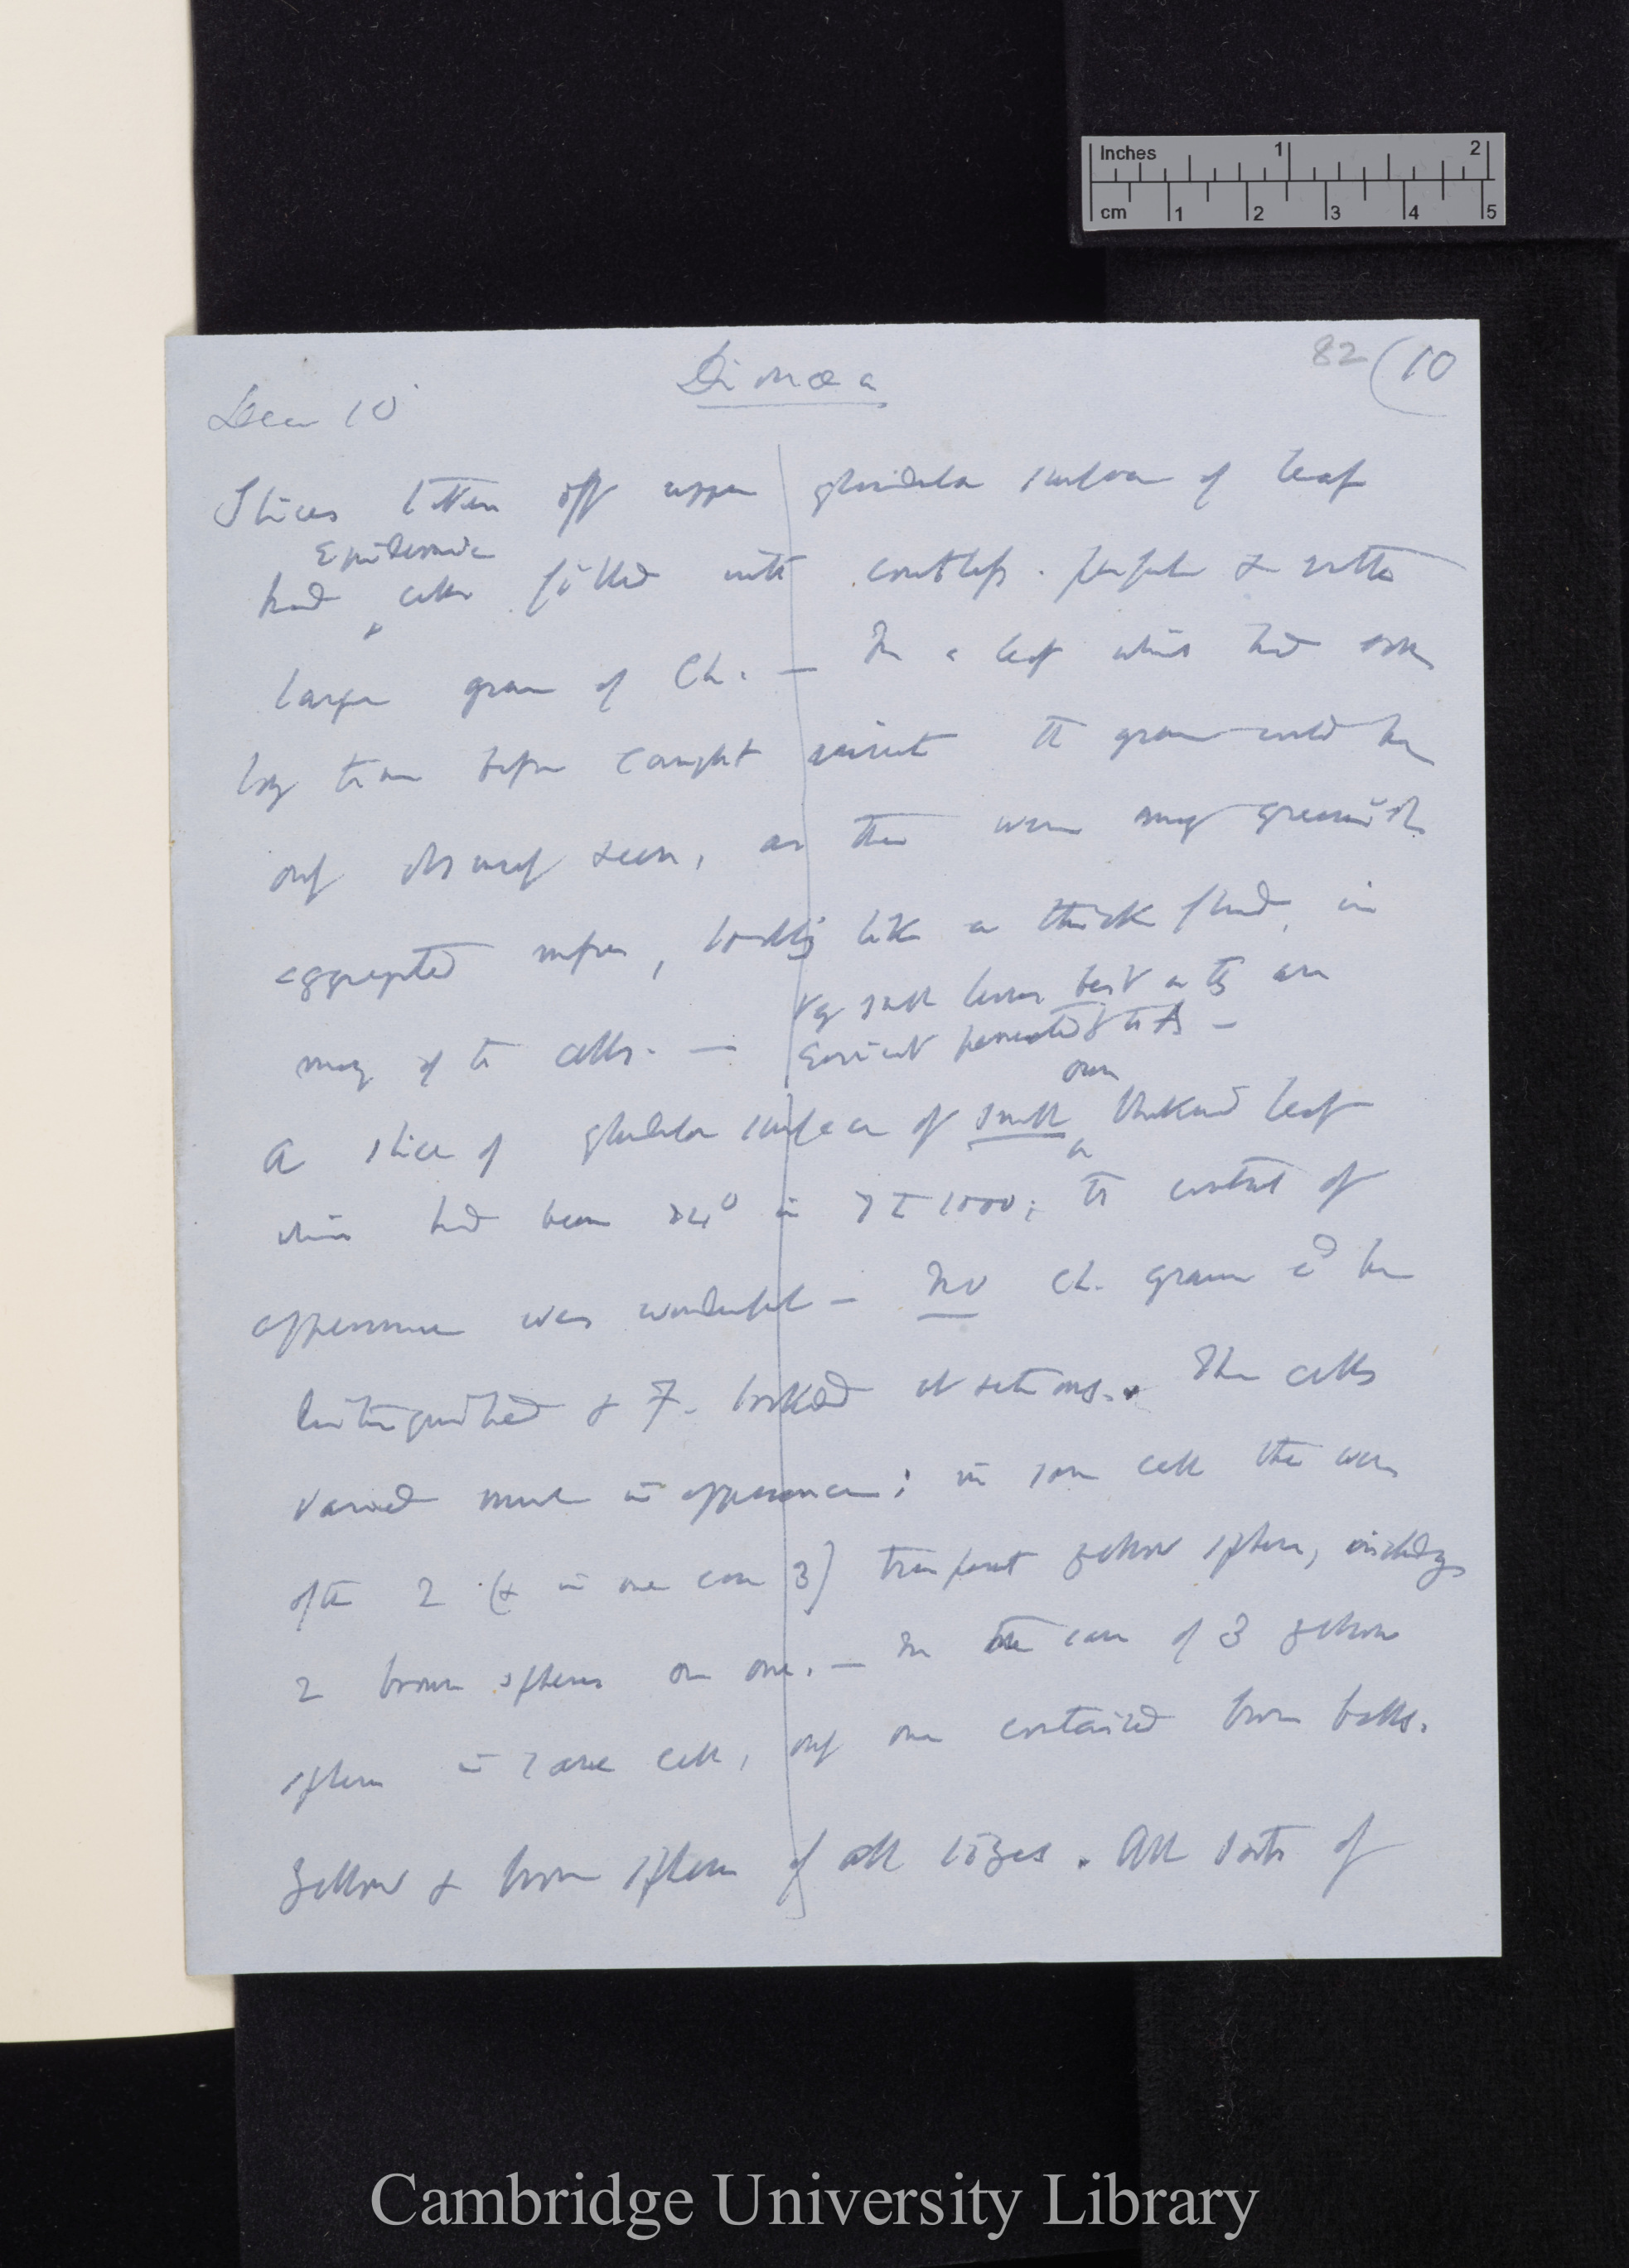 Inches 1 2
cm 1 2 3 4 5
82 (10
Dionæa
Dec 10
Slices taken off upper glandular surface of leaf
Epidermic
had cells filled with countless. perfect & rather
large grains of Ch. — In a leaf which had some
long time before caught insect the grains could be
only obscurely seen, as there were many greenish
aggregated masses, looking like a thick fluid, in
many of the cells. —
Very small leaves best as they are
easiest penetrated
own
A slice of glandular surface of small thickened leaf
which had been 24° in 7 to 1000; the contrast of
appearance was wonderful — No Ch. grains cd be
distinguished & F. looked at sections. The cells
varied much in appearance: in some cells there were
often 2 (& in one case 3) transparent yellow spheres, including
2 brown spheres or one. — In the case of 3 yellow
spheres in same cell, only one contained brown balls.
Yellow & brown spheres of all sizes. All sorts of
Cambridge University Library